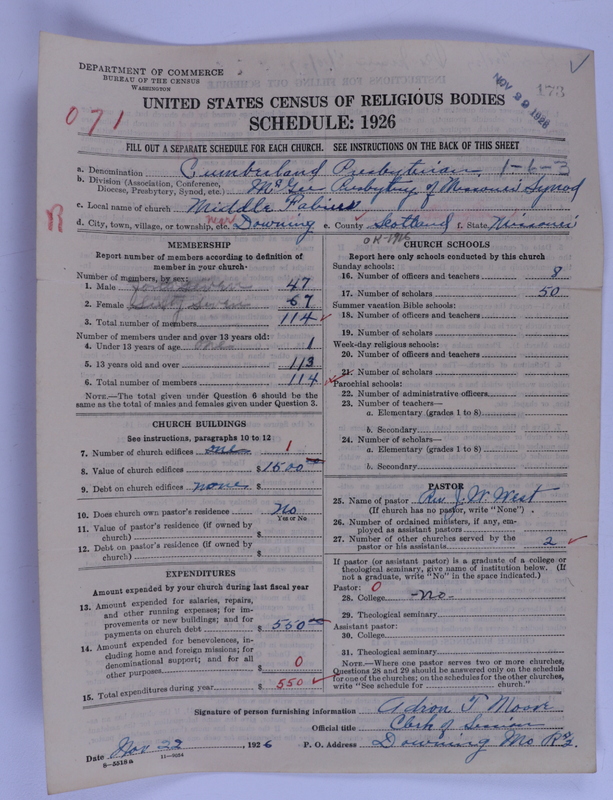 DEPARTMENT OF COMMERCE
BUREAU OF THE CENSUS
WASHINGTON
NOV 29 1926
173
071
UNITED STATES CENSUS OF RELIGIOUS BODIES
SCHEDULE: 1926
FILL OUT A SEPARATE SCHEDULE FOR EACH CHURCH. SEE INSTRUCTIONS ON THE BACK OF THIS SHEET
a. Denomination Cumberland Presbyterian 1-6-3
b. Division (Association, Conference, Diocese, Presbytery, Synod, etc.) McGee Presbytery of Missouri Synod
c. Local name of church Middle Fabius
R
d. City, town, village, or township, etc. near Downing e. County Scotland f. State Missouri
OK-1916
MEMBERSHIP
Report number of members according to definition of member in your church-
Number of members, by sex:
1. Male forty seven 47
2. Female Sixty Seven 67
3. Total number of members 114
Number of members under and over 13 years old:
4. Under 13 years of age one 1
5. 13 years old and over 113
6. Total number of members 114
NOTE.—The total given under Question 6 should be the same as the total of males and females given under Question 3.
CHURCH BUILDINGS
See instructions, paragraphs 10 to 12
7. Number of church edifices one 1
8. Value of church edifices $1500 00
9. Debt on church edifices none $
10. Does church own pastor's residence? No
Yes or No
11. Value of pastor's residence (if owned by church) $
12. Debt on pastor's residence (if owned by church) $
EXPENDITURES
Amount expended by your church during last fiscal year
13. Amount expended for salaries, repairs, and other running expenses; for improvements or new buildings; and for payments on church debt $ 550 00
14. Amount expended for benevolences, including home and foreign missions; for denominational support; and for all other purposes $ 0
15. Total expenditures during year $ 550
CHURCH SCHOOLS
Report here only schools conducted by this church
Sunday schools:
16. Number of officers and teachers 8
17. Number of scholars 50
Summer vacation Bible schools:
18. Number of officers and teachers
19. Number of scholars
Week-day religious schools:
20. Number of officers and teachers
21. Number of scholars
Parochial schools:
22. Number of administrative officers
23. Number of teachers—
a. Elementary (grades 1 to 8)
b. Secondary
24. Number of scholars—
a. Elementary (grades 1 to 8)
b. Secondary
PASTOR
25. Name of pastor Rev. J. W. West
(If church has no pastor, write "None")
26. Number of ordained ministers, if any, employed as assistant pastors
27. Number of other churches served by the pastor or his assistants 2
If pastor (or assistant pastor) is a graduate of a college or theological seminary, give name of institution below. (If not a graduate, write "No" in the space indicated.)
Pastor: 0
28. College -No-
29. Theological seminary
Assistant pastor:
30. College
31. Theological seminary
NOTE.—Where one pastor serves two or more churches, Questions 28 and 29 should be answered only on the schedule for one of the churches; on the schedules for the other churches, write "See schedule for church."
Signature of person furnishing information Adron T Moore
Official title Clerk of Session
Date Nov 22, 1926 P. O. Address Downing Mo R#2.
8-5518a 11-9054